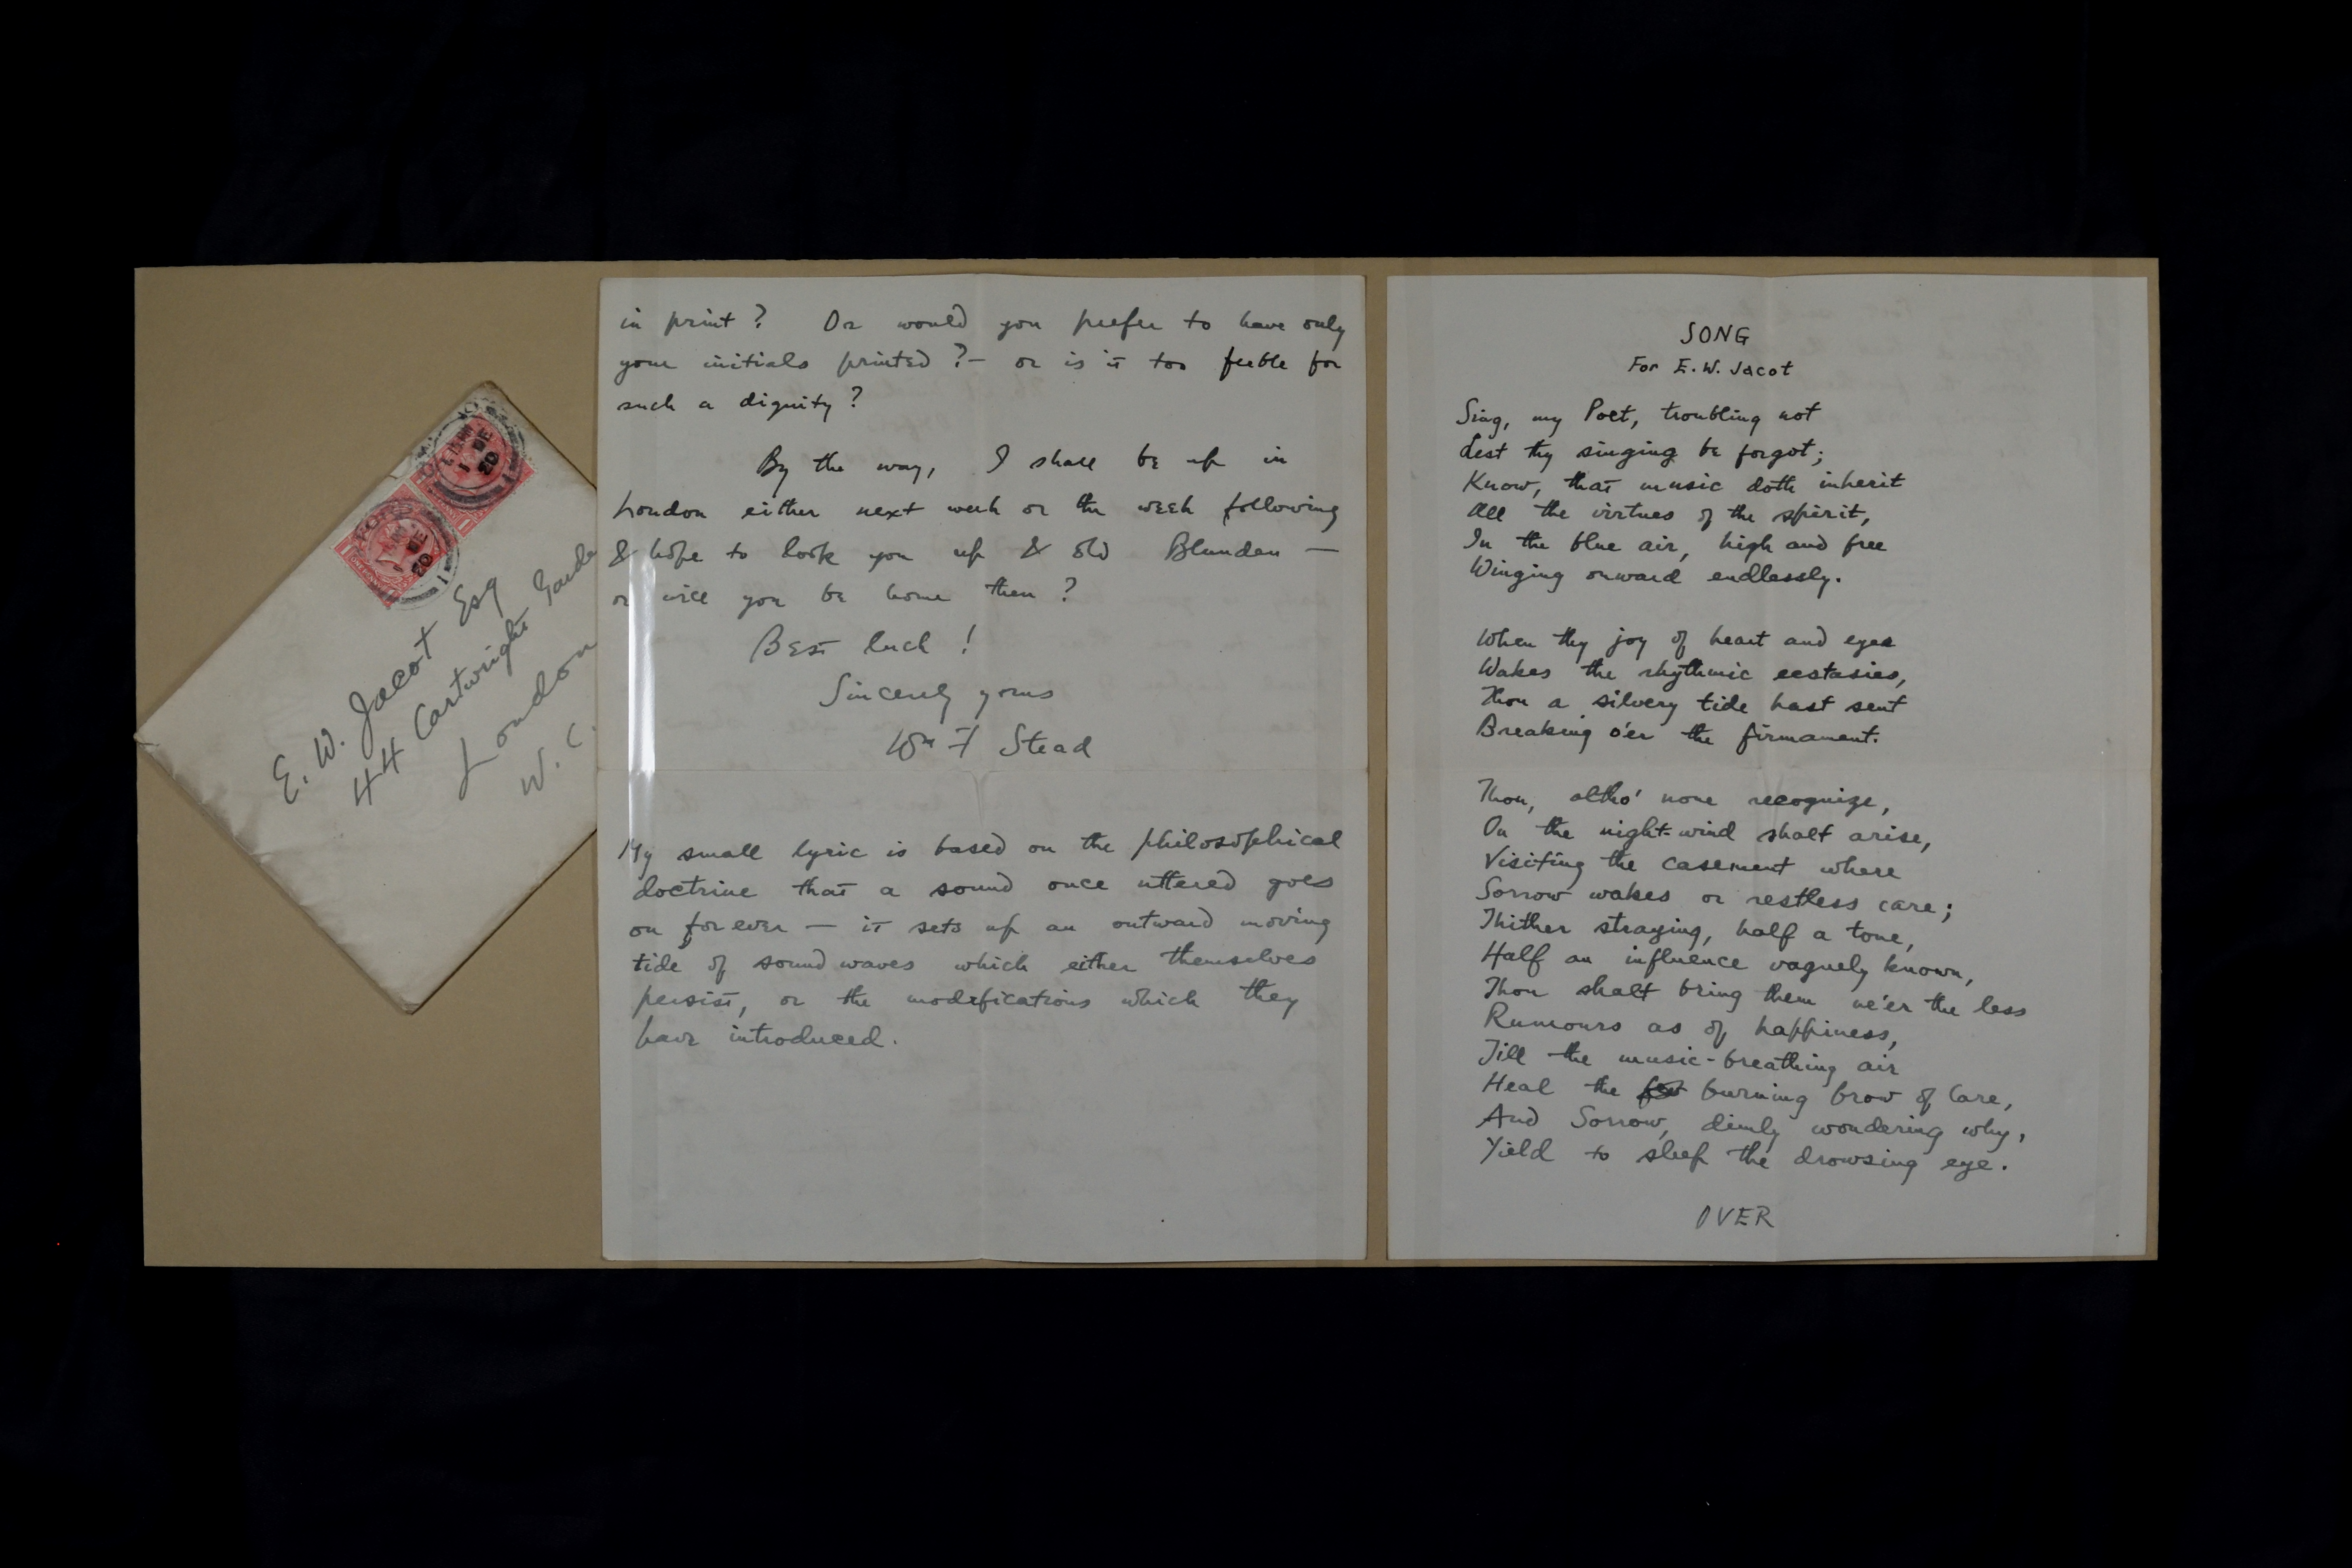 E. W. Jacot Esq
44 Cartwright Garde
London
W. C.
1 DE
20
1 DE
20
in print? Or would you prefer to have only
your initials printed?— or is it too feeble for
such a dignity?
By the way, I shall be up in
London either next week or the week following
& hope to look you up & old Blunden —
or will you be home then?
Best luck!
Sincerely yours
Wm F Stead
My small lyric is based on the philosophical
doctrine that a sound once uttered goes
on forever — it sets up an outward moving
tide of sound waves which either themselves
persist, or the modifications which they
have introduced.
SONG
For E. W. Jacot
Sing, my Poet, troubling not
Lest thy singing be forgot;
Know, that music doth inherit
All the virtues of the spirit,
In the blue air, high and free
Winging onward endlessly.
When thy joy of heart and eyes
Wakes the rhythmic ecstasies,
Thou a silvery tide hast sent
Breaking o'er the firmament.
Thou, altho' none recognize,
On the night-wind shalt arise,
Visiting the casement where
Sorrow wakes or restless care;
Thither straying, half a tone,
Half an influence vaguely known,
Thou shalt bring them ne'er the less
Rumours as of happiness,
Till the music-breathing air
Heal the burning brow of Care,
And Sorrow, dimly wondering why,
Yield to sleep the drowsing eye.
OVER